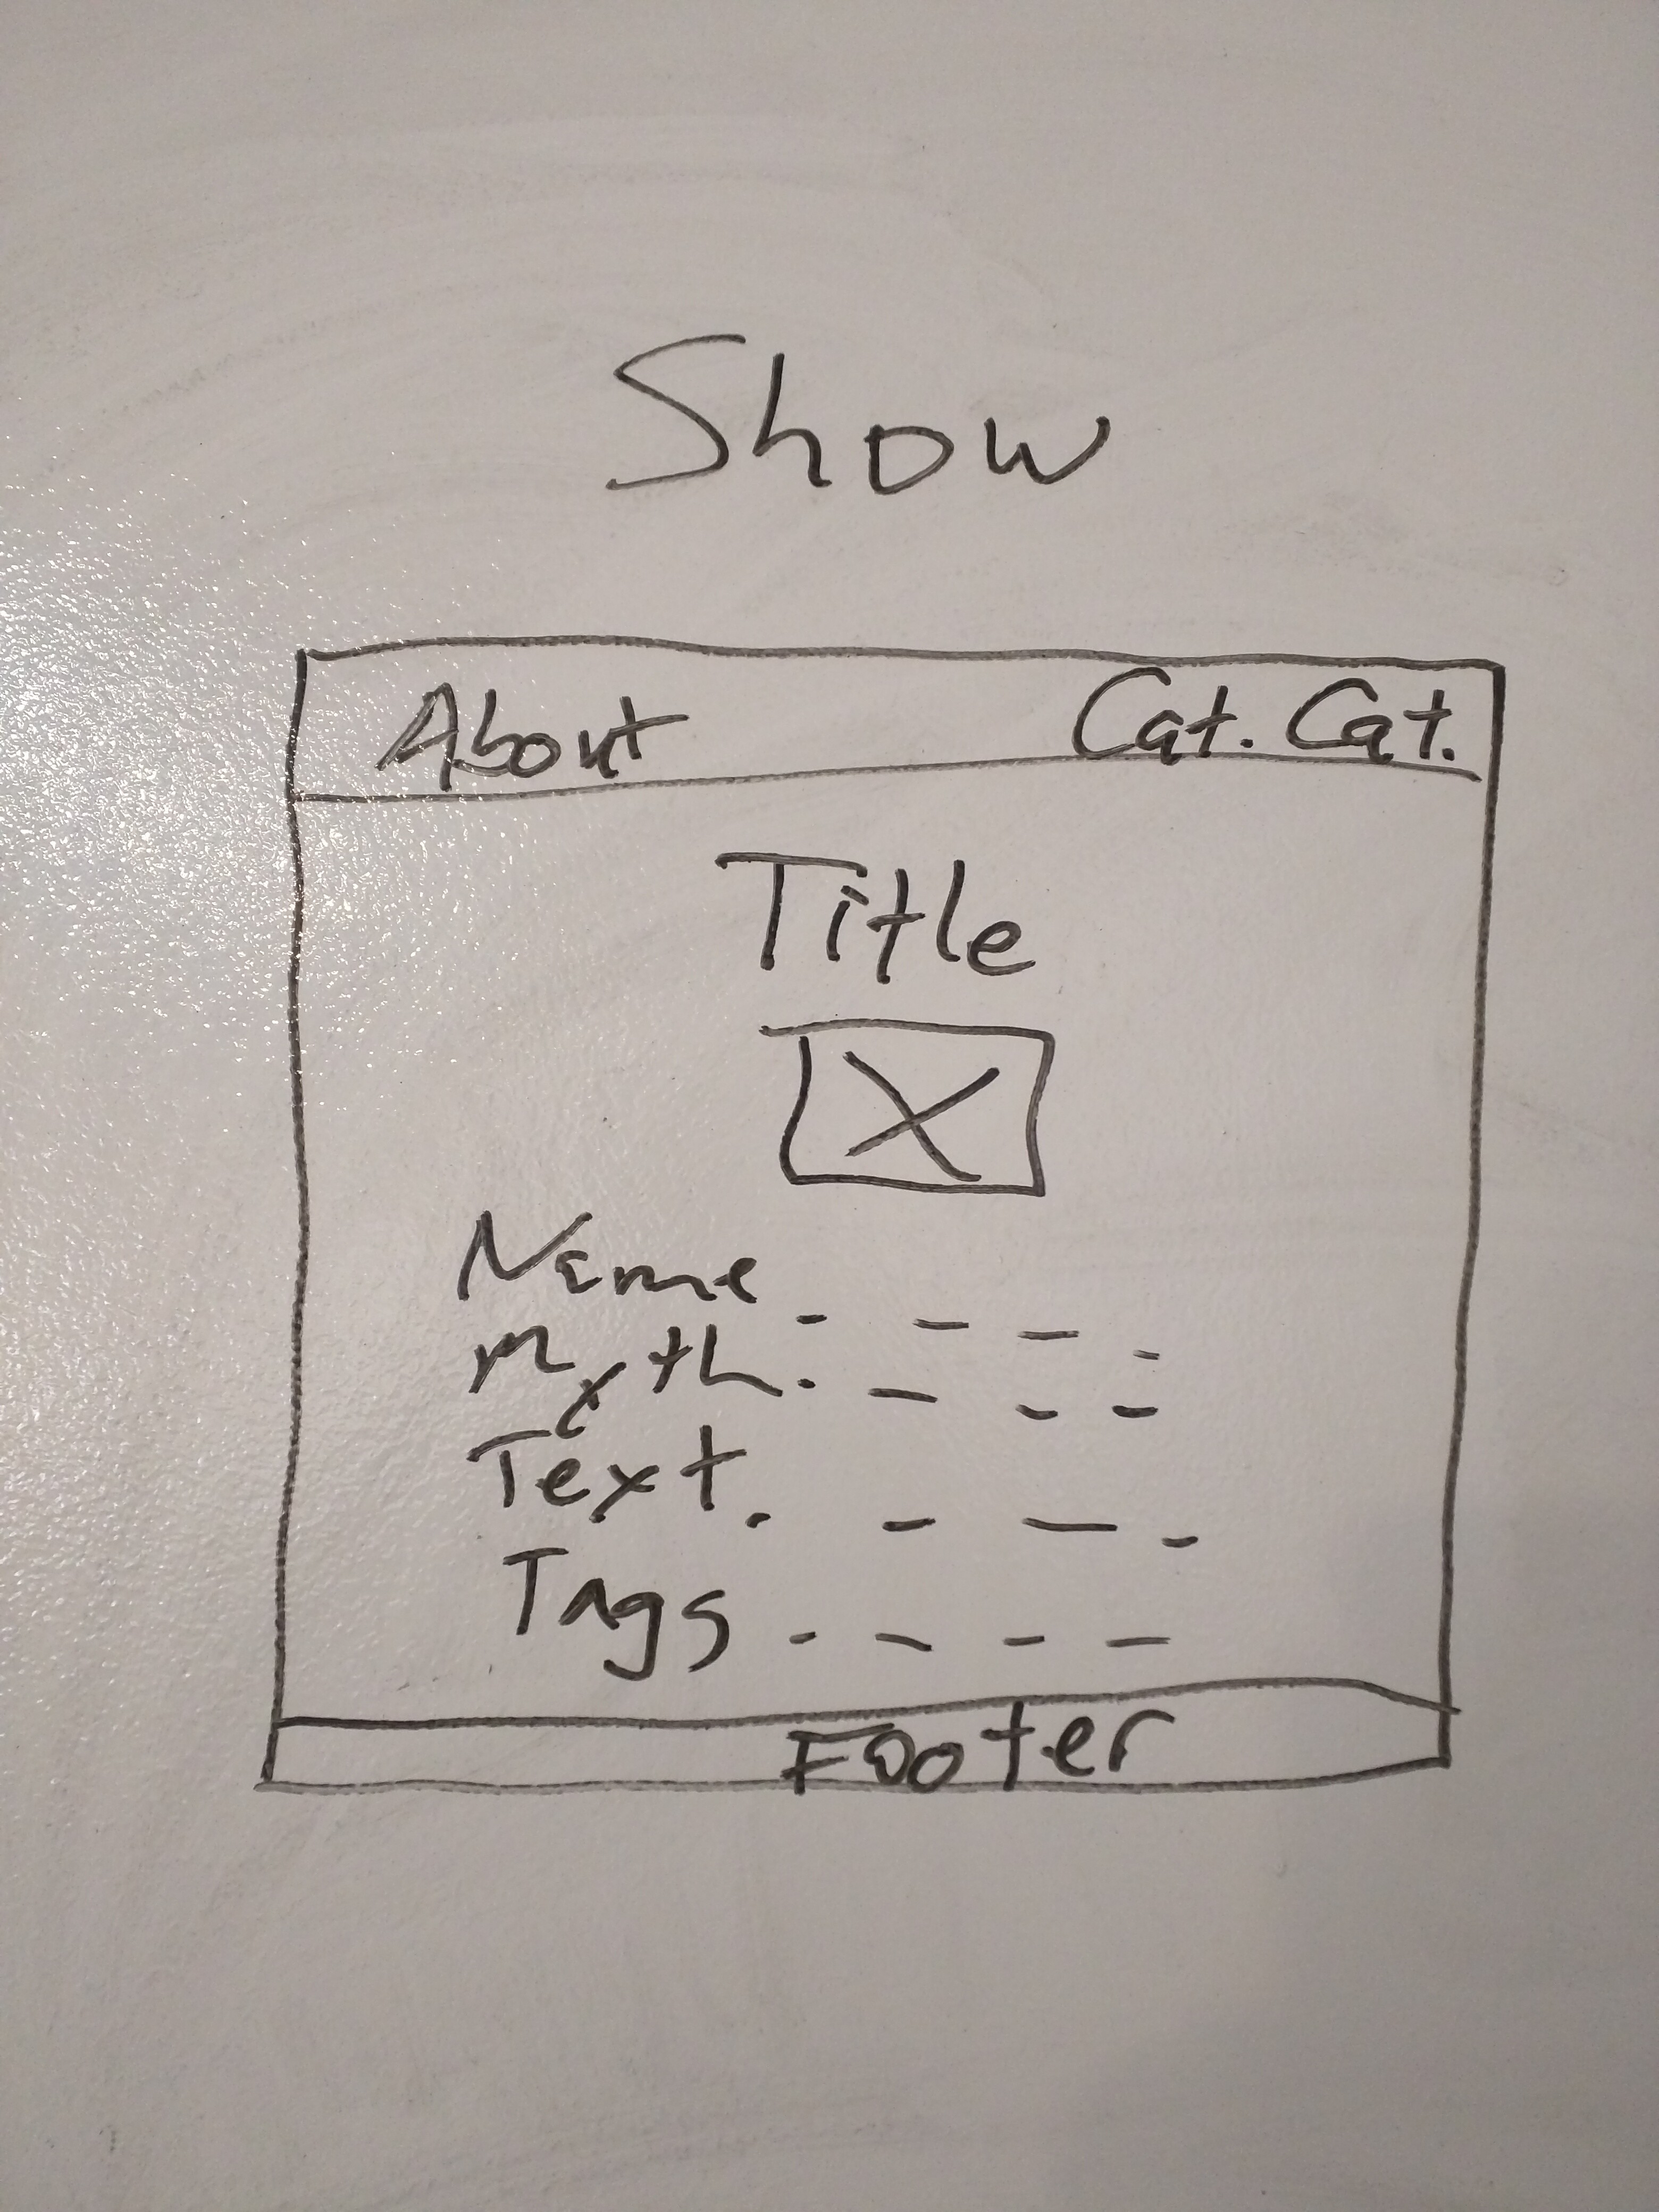 Show
About Cat. Cat.
Title
Name
Myth
Text
Tags
Footer